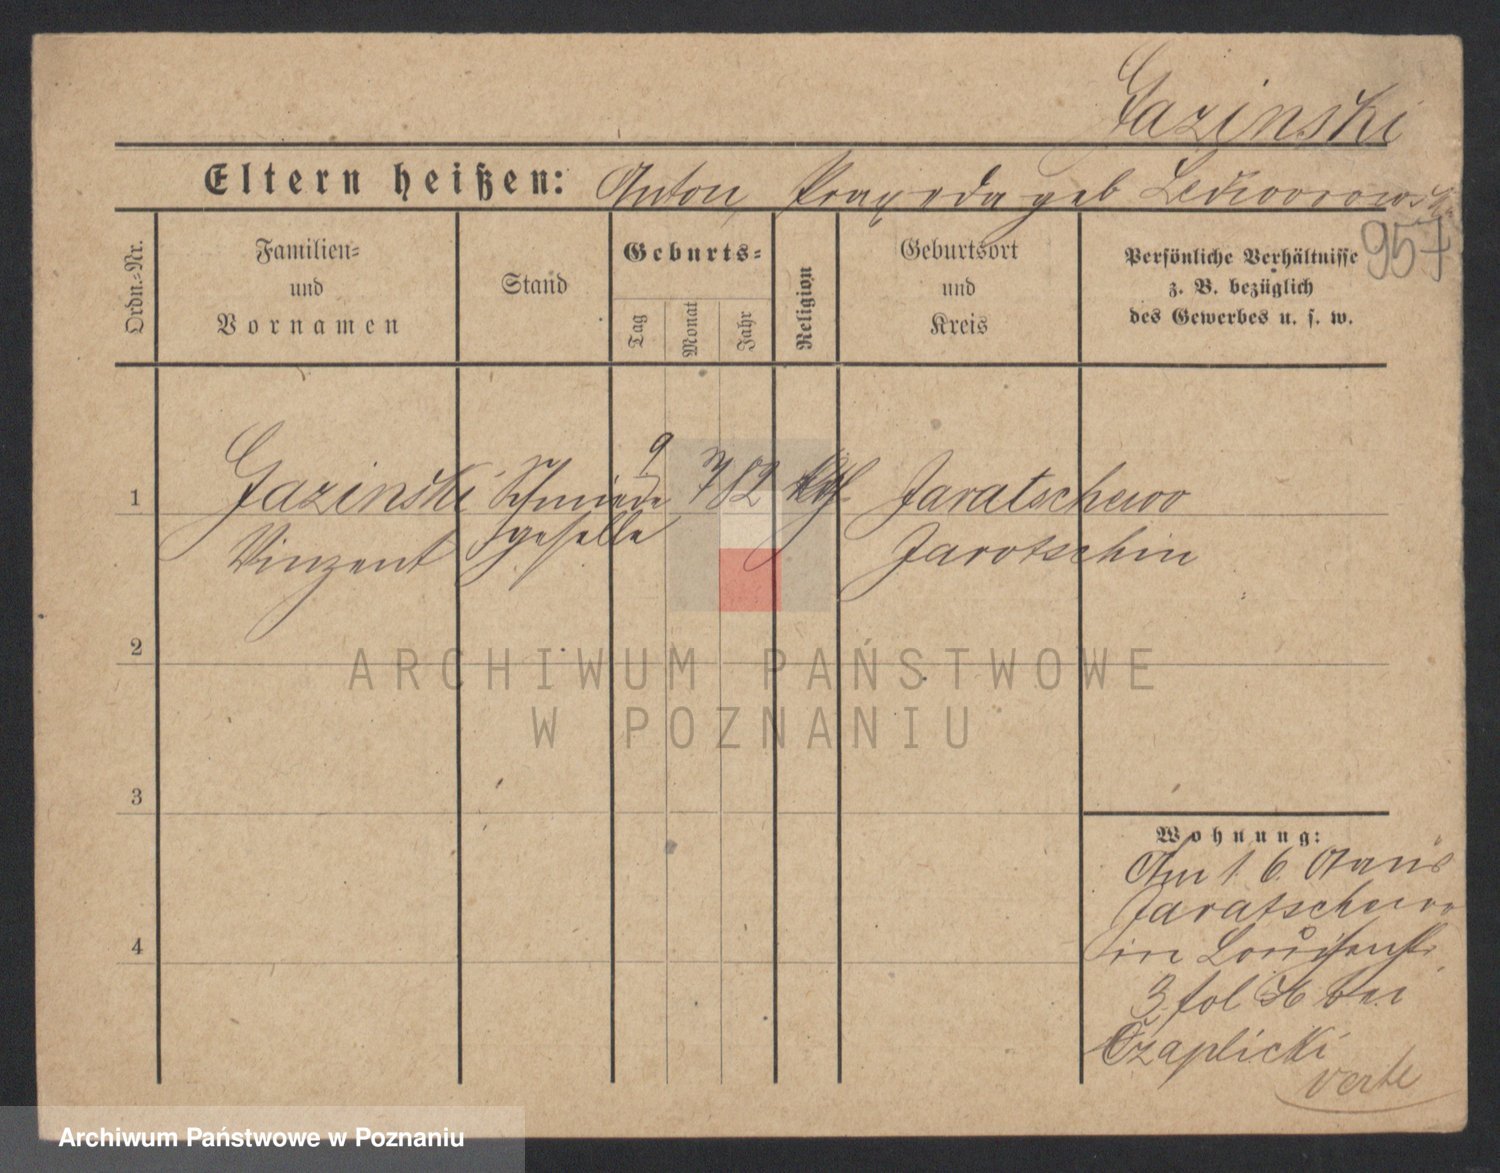 Gazinski
Eltern heißen: Anton, Praxeda geb
957
Ordn.-Nr.
Familien-
und
Vornamen
Stand
Geburts-
Tag
Monat
Jahr
Religion
Geburtsort
und
Kreis
Persönliche Verhältnisse
z. B. bezüglich
des Gewerbes u. s. w.
1
Gazinski Schmiede 9 7 82 kth Jaratschewo
Vinzent geselle Jarotschin
2
ARCHIWUM PAŃSTWOWE
W POZNANIU
3
Wohnung:
Am 1. 6. aus
Jaratschewo
in Louisenstr.
3 bei
Czaplicki
verte
4
Archiwum Państwowe w Poznaniu